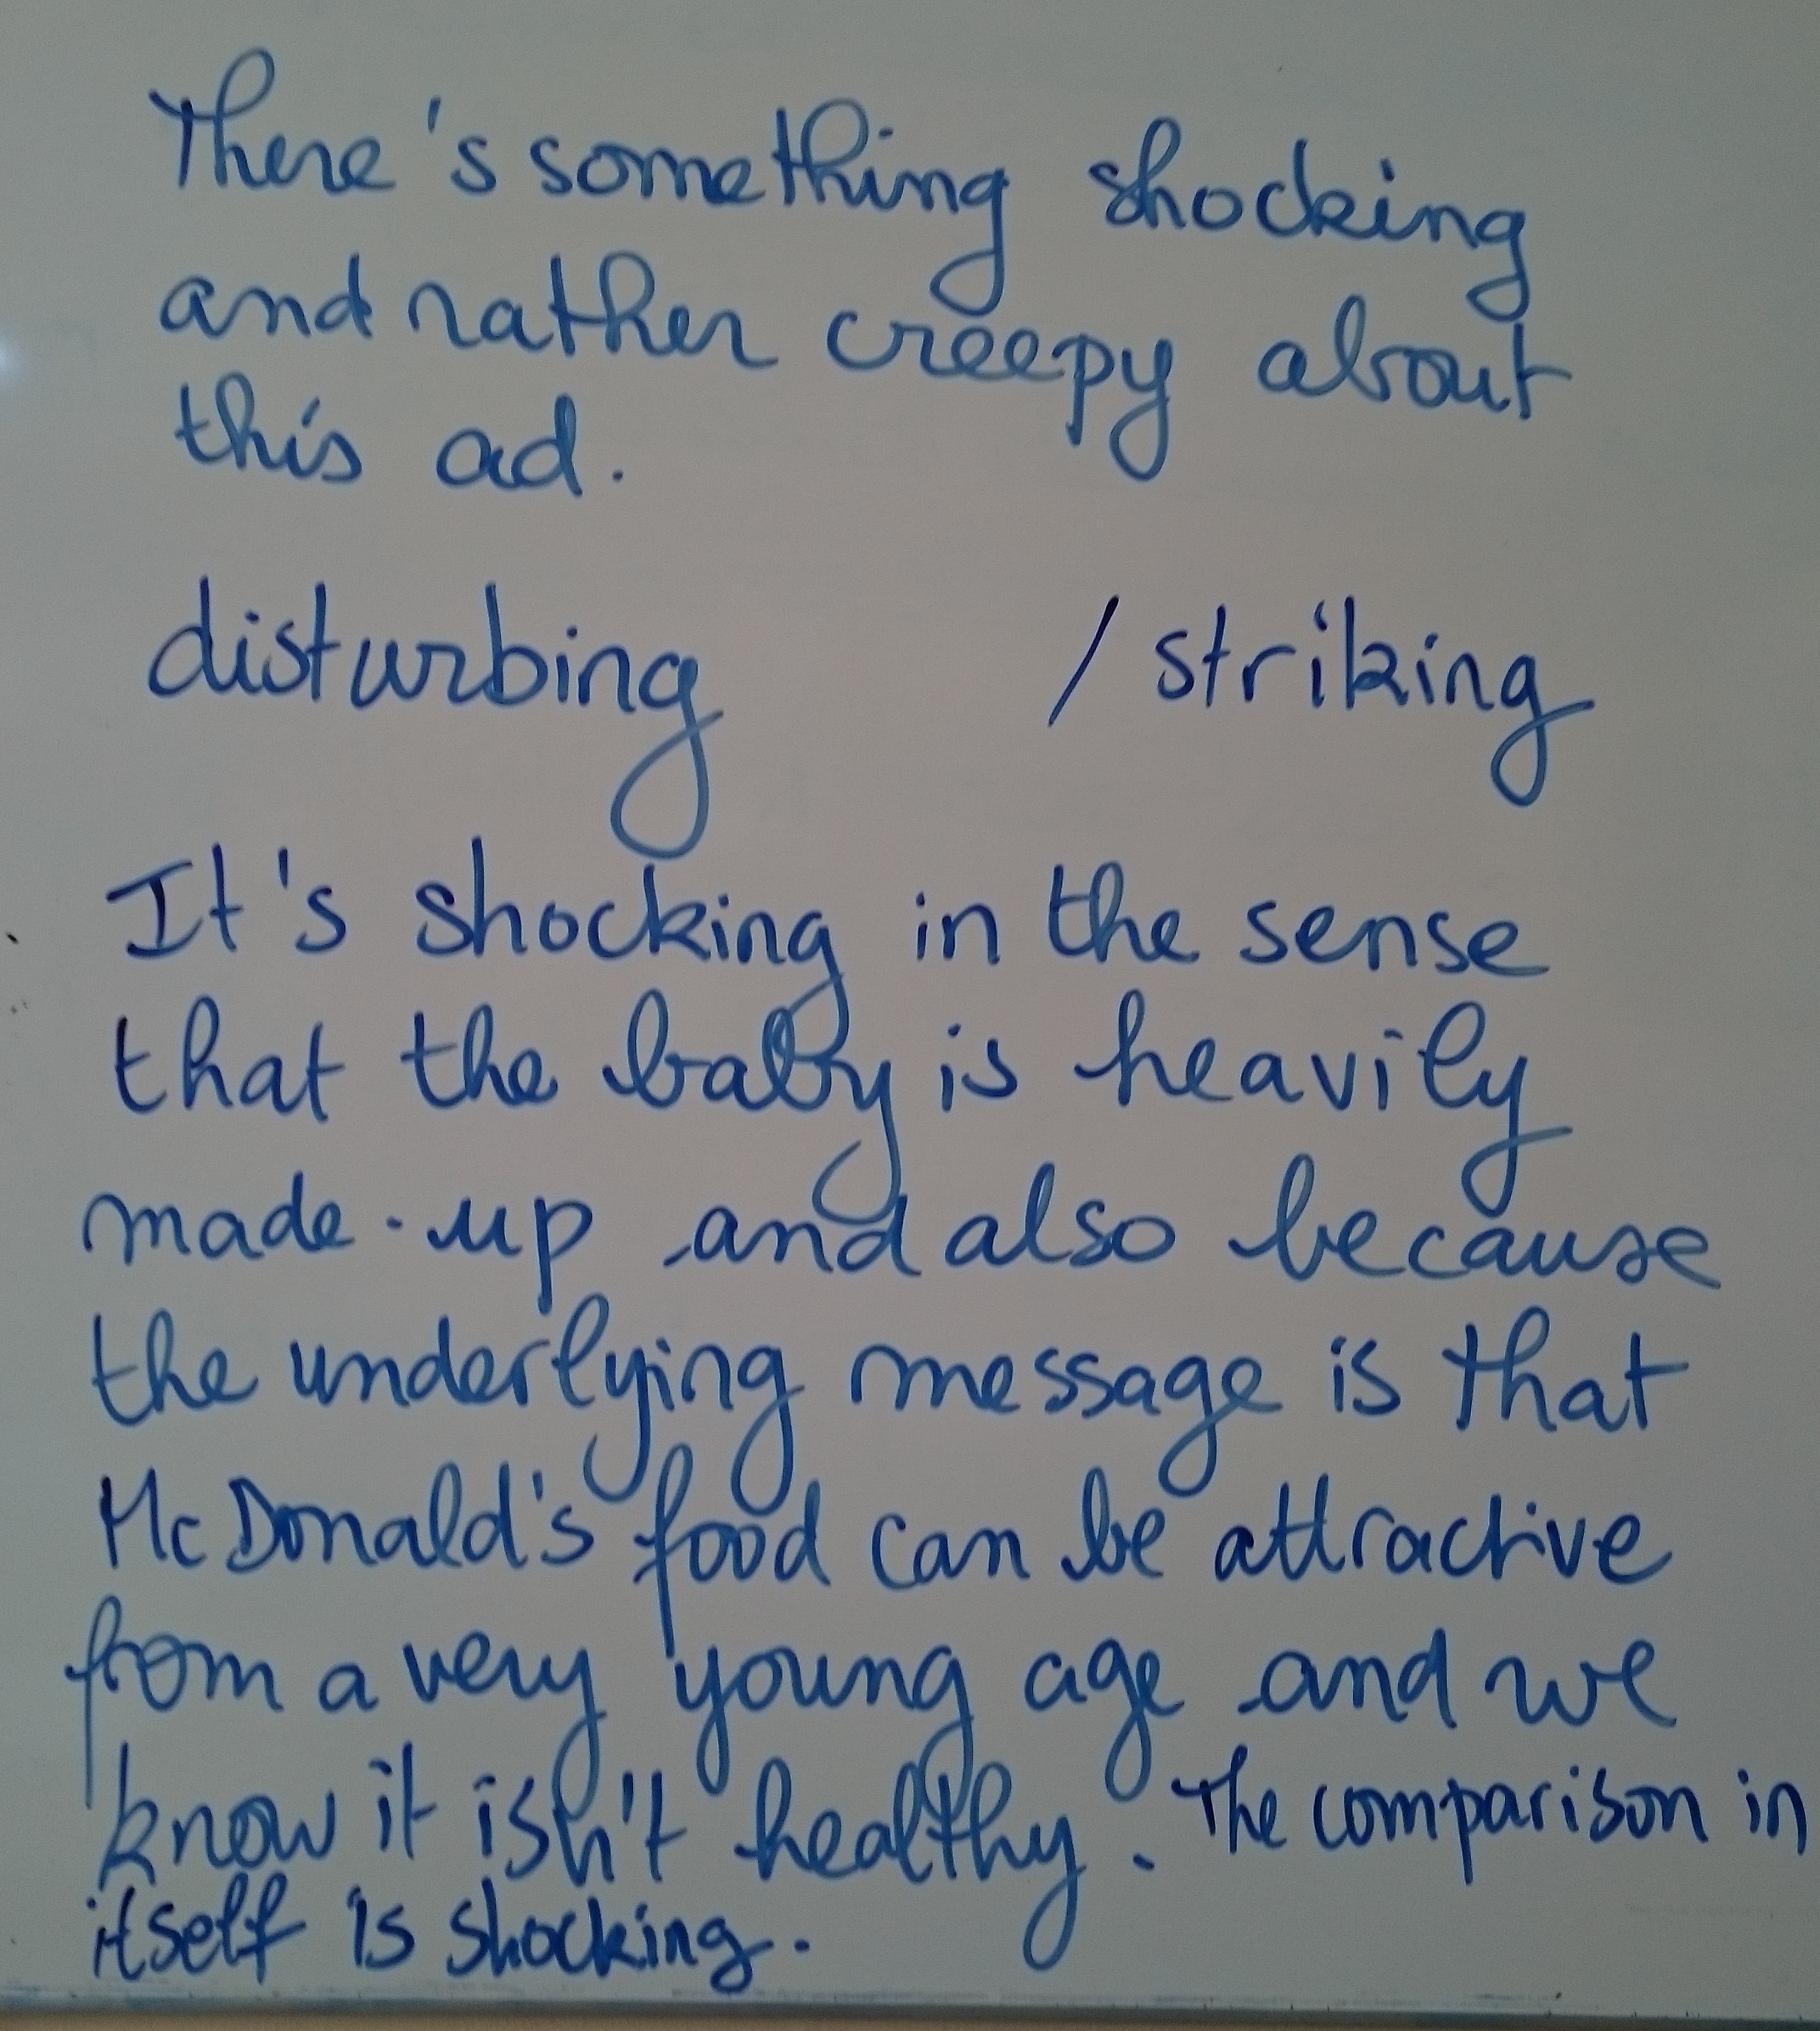 There's something shocking
and rather creepy about
this ad.
disturbing / striking
It's shocking in the sense
that the baby is heavily
made-up and also because
the underlying message is that
McDonald's food can be attractive
from a very young age and we
know it isn't healthy. The comparison in
itself is shocking.